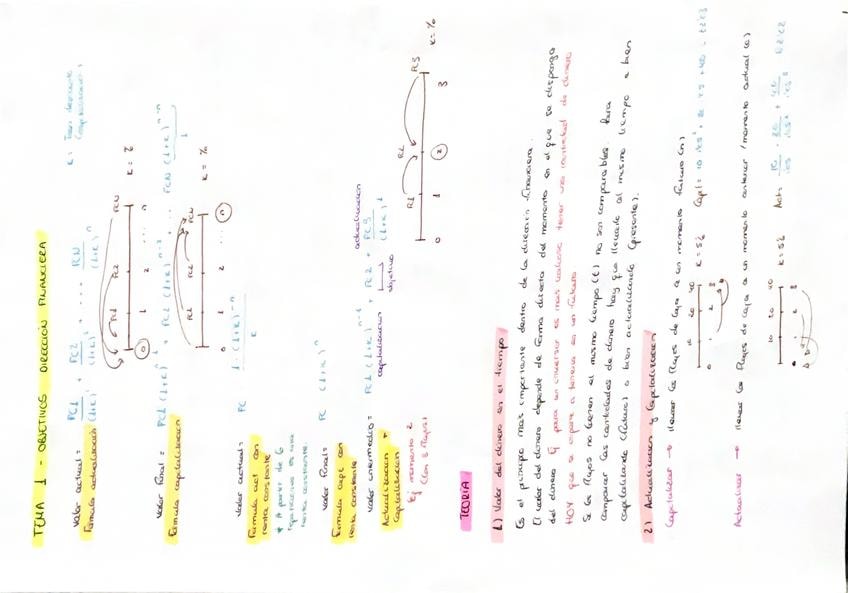 TEMA 1 - OBJETIVOS DIRECCIÓN FINANCIERA
Valor actual =
Formula actualización
FC1 / (1+k)^1 + FC2 / (1+k)^2 + ... FCN / (1+k)^n
k: Tasa descuento
(capitalización)
FC1 FC2 FCN
0 1 2 ... n
k = %
Valor final =
Formula capitalización
FC1 (1+k)^n-1 + FC2 (1+k)^n-2 + ... FCN (1+k)^n-n
1
FC1 FC2 FCN
0 1 2 ... n
k = %
Valor actual =
Formula act con
renta constante
FC 1-(1+k)^-n / k
* A partir de 6
es una
renta constante.
Valor final =
Formula capt con
renta constante
FC (1+k)^n
Valor intermedio =
Actualización +
Capitalización
FC1 (1+k)^n-1 + FC2 + FC3 / (1+k)^1
capitalización
objetivo
actualización
Ej momento 2
(con 3 flujos)
R1 R2 R3
0 1 2 3
k = %
TEORÍA
1) Valor del dinero en el tiempo
Es el principio más importante dentro de la dirección financiera.
El valor del dinero depende de forma directa del momento en el que se disponga
del dinero Ej para un inversor es más valioso tener una cantidad de dinero
HOY que si espera a tenerla en un futuro
Si los flujos no tienen el mismo tiempo (t) no son comparables. Para
comparar las cantidades de dinero hay que llevarlo al mismo tiempo o bien
capitalizando (futuro) o bien actualizando (presente).
2) Actualización y Capitalización
Capitalizar → llevar los flujos de caja a un momento futuro (n)
10 20 40
0 1 2 3
k = 5%
Actualizar → llevar los flujos de caja a un momento anterior / momento actual (0)
10 20 40
k = 5%